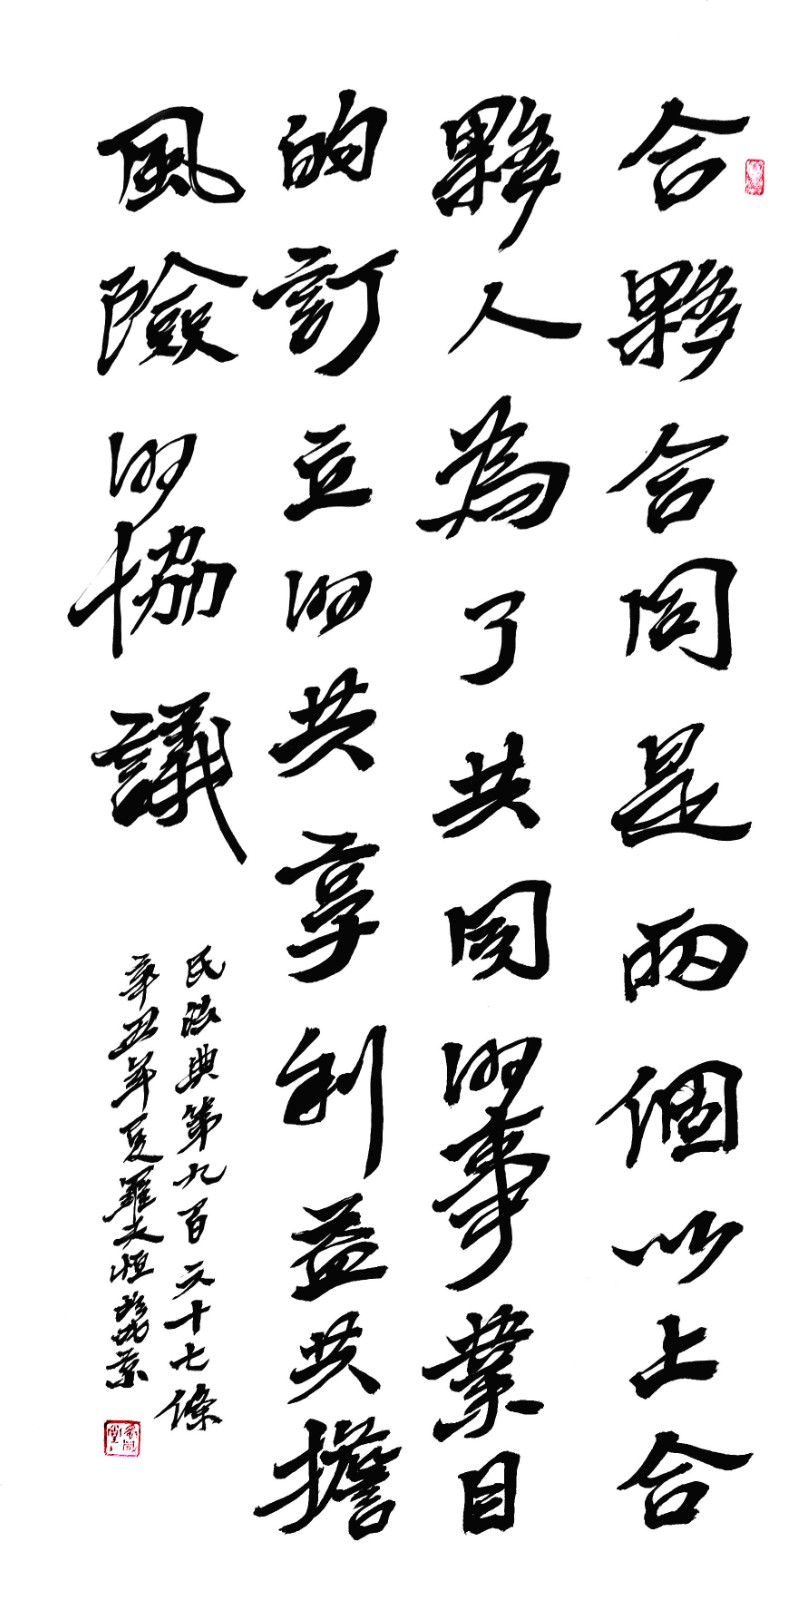 合夥合同是兩個以上合
夥人為了共同的事業目
的訂立的共享利益共擔
風險的協議
民法典第九百六十七條
辛丑年夏羅恒於北京